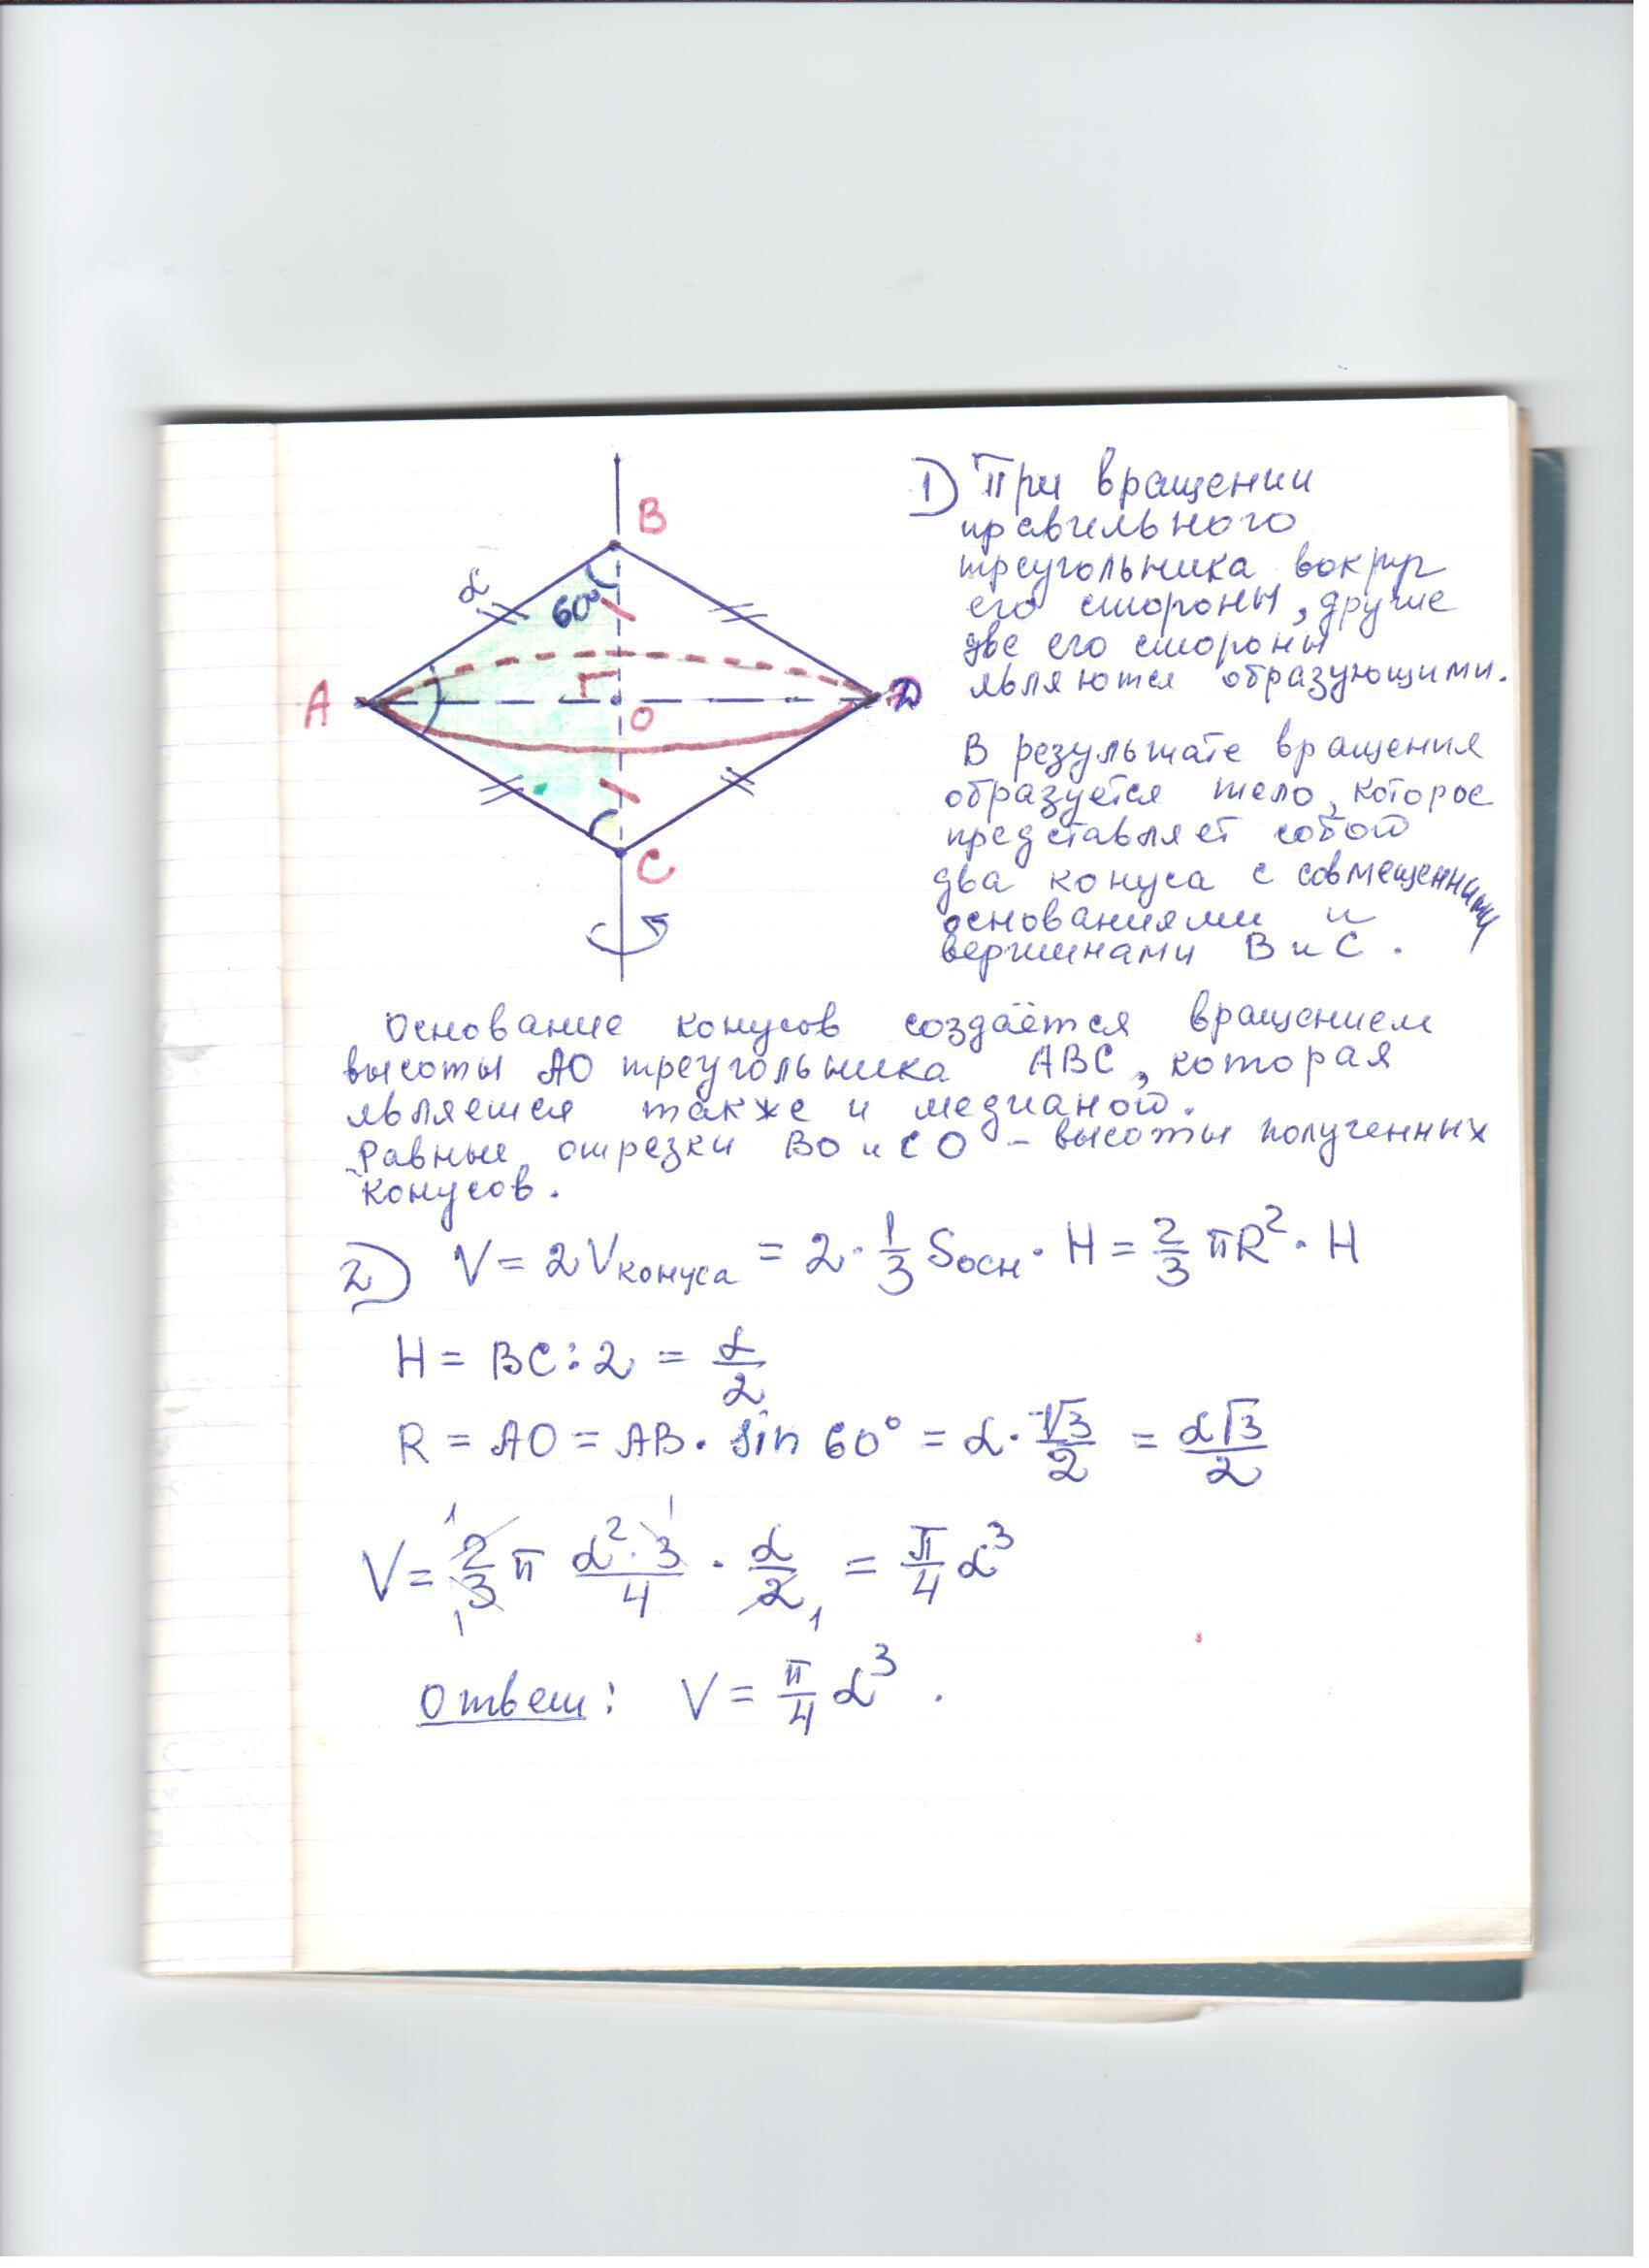 B
α
60°
A
O
D
C
1) При вращении
правильного
треугольника вокруг
его стороны, другие
две его стороны
являются образующими.
В результате вращения
образуется тело, которое
представляет собой
два конуса с совмещенными
основаниями и
вершинами B и C.
Основание конусов создаётся вращением
высоты AO треугольника ABC, которая
является также и медианой.
Равные отрезки BO и CO – высоты полученных
конусов.
2) V = 2Vконуса = 2 · 1/3 Sосн · H = 2/3 πR² · H
H = BC : 2 = α/2
R = AO = AB · sin 60° = α · √3/2 = α√3/2
V = 2/3 π α²·3/4 · α/2 = π/4 α³
Ответ: V = π/4 α³.